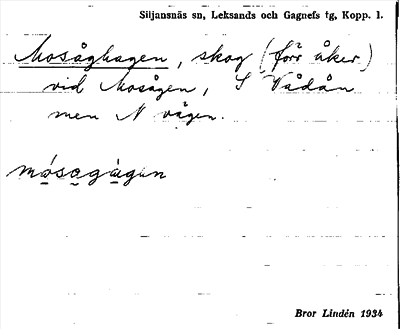 Siljansnäs sn, Leksands och Gagnefs tg, Kopp. l.
Mosåghagen, skog (förr åker)
vid Mosågen, S Vådån
men N vägen.
Bror Lindén 1934